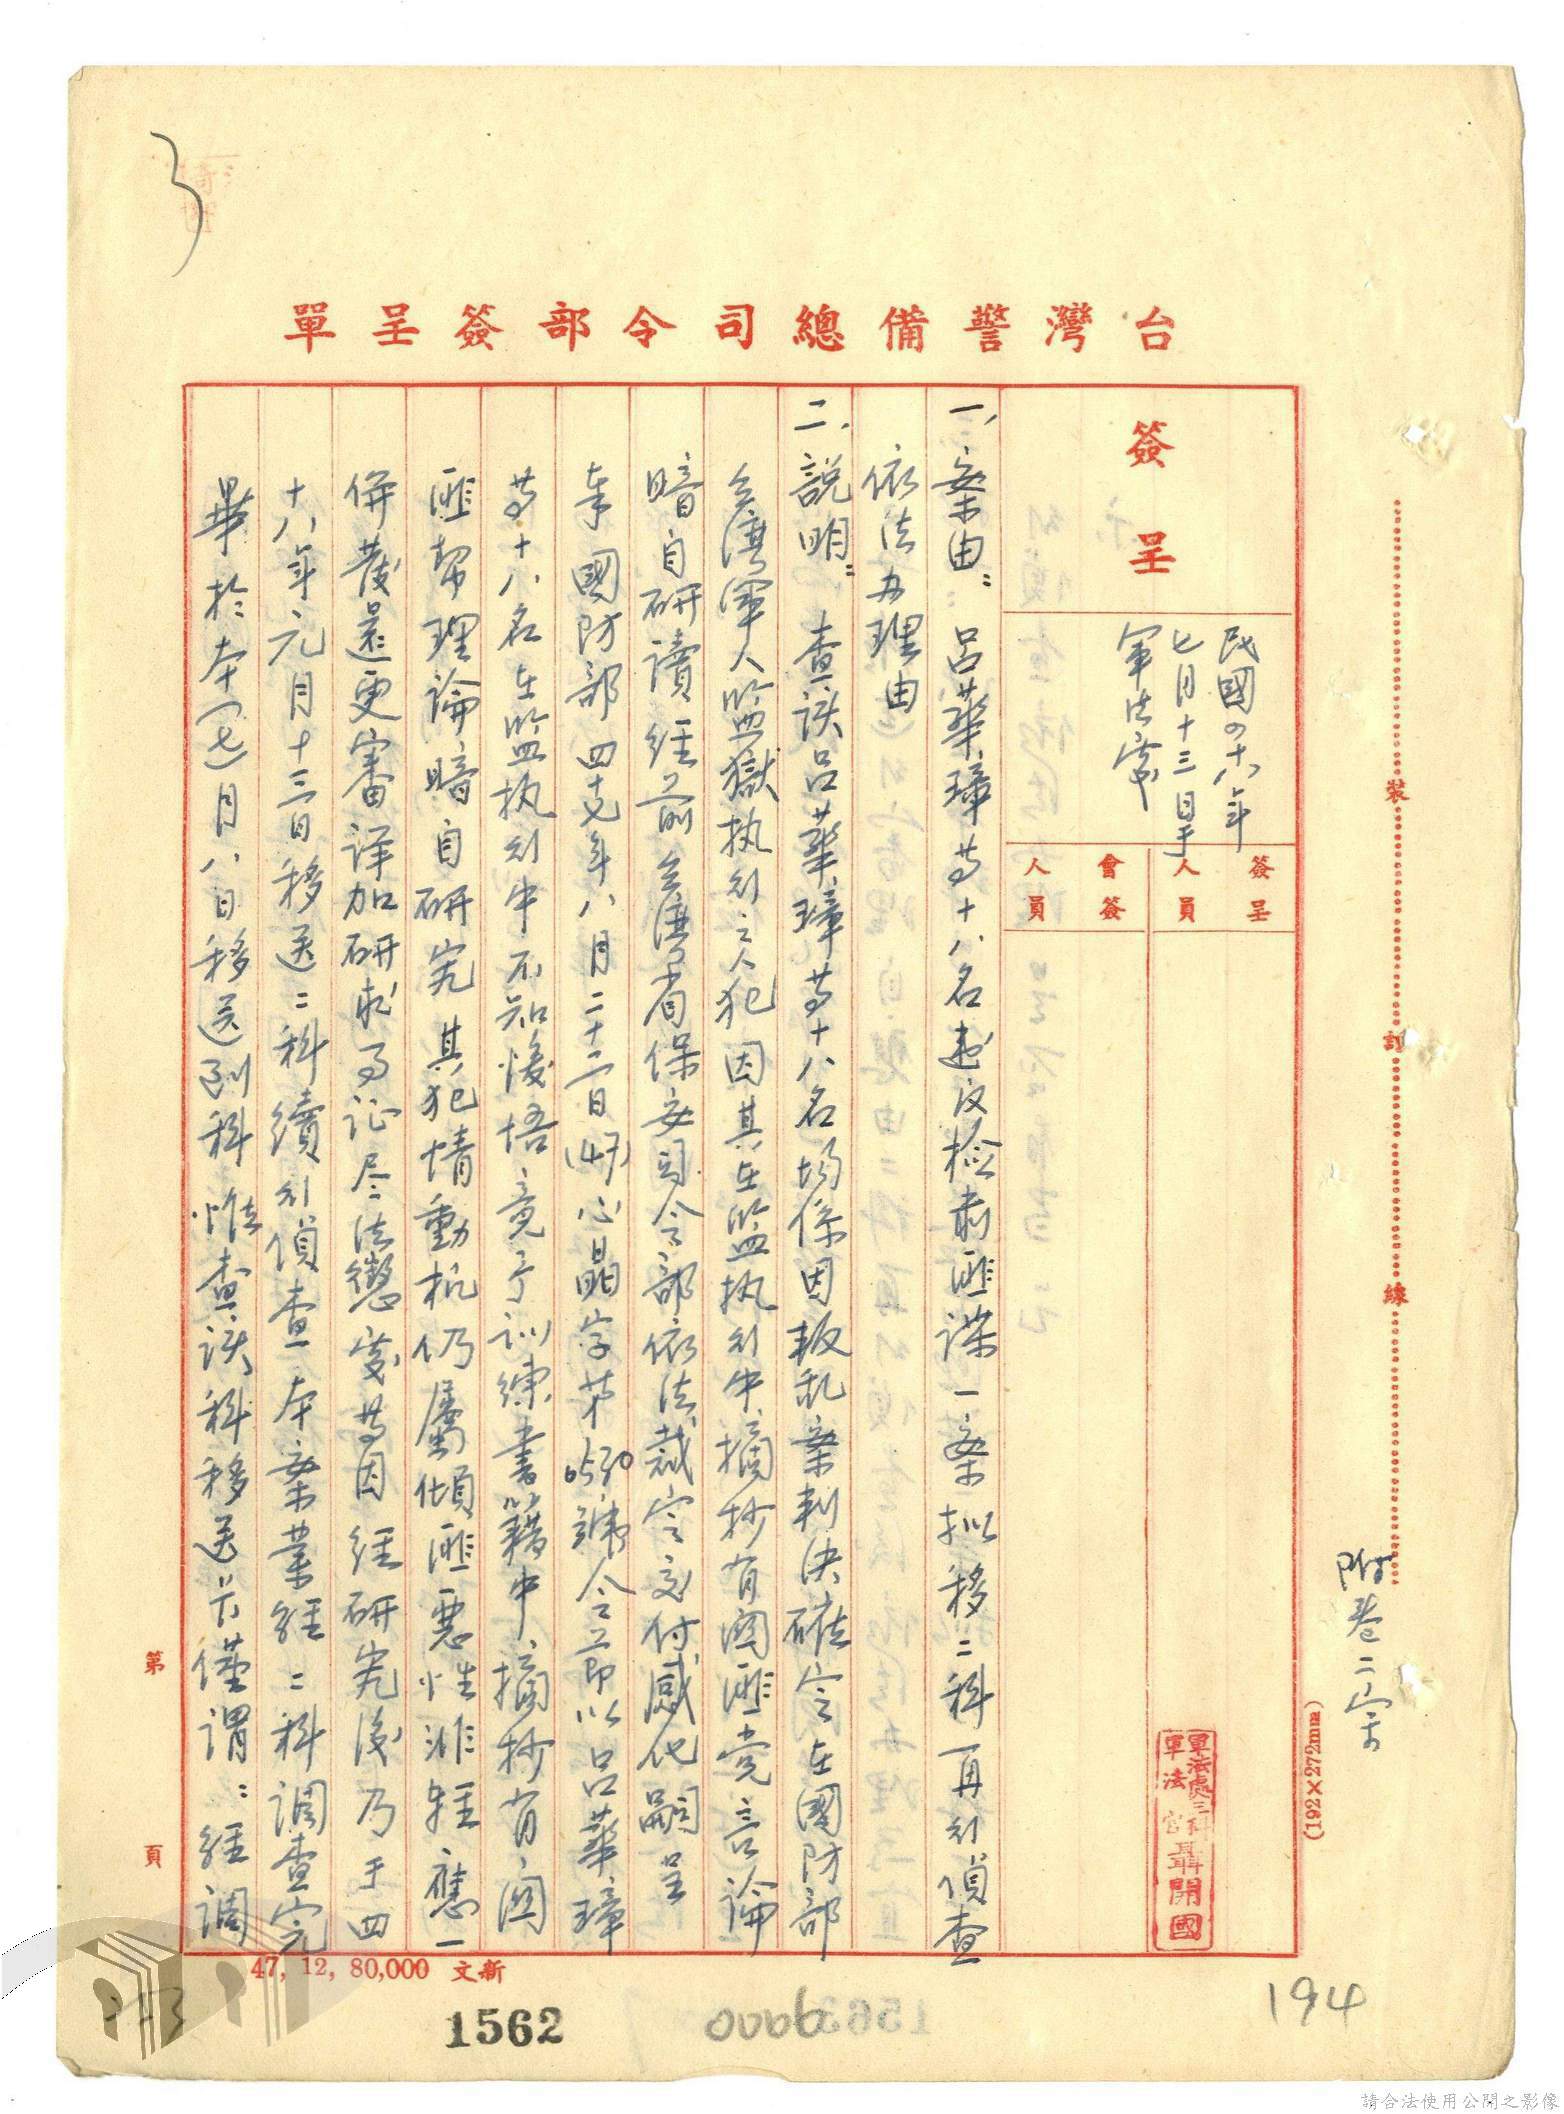 台灣警備總司令部簽呈單
簽呈
民國四十八年
七月十三日于
軍法處
簽呈人員
會簽人員
軍法處三科
軍法官聶開國
附卷二宗
裝訂線
(192×272mm)
一、案由：呂華璋等十八名違反檢肅匪諜一案拟移二科再行偵查
依法办理由
二、說明：查該呂華璋等十八名均係因叛乱案判決確定在國防部
台灣軍人監獄执行之人犯因其在監执行中摘抄有関匪党言論
暗自研讀經前台灣省保安司令部依法裁定交付感化嗣呈
奉國防部四十七年八月二十二日(47)心晶字第 號令節以呂華璋
等十八名在監执行中不知悛悟竟于訓練書籍中摘抄有関
匪幫理論暗自研究其犯情動机仍屬傾匪惡性非輕應一
併發還更審详加研求事证尽法懲處等因經研究後乃于四
十八年元月十三日移送二科續行偵查本案業經二科調查完
畢於本(七)月八日移送到科惟查該科移送片僅謂：經調
第 頁
47, 12, 80,000 新文
1562
194
請合法使用公開之影像